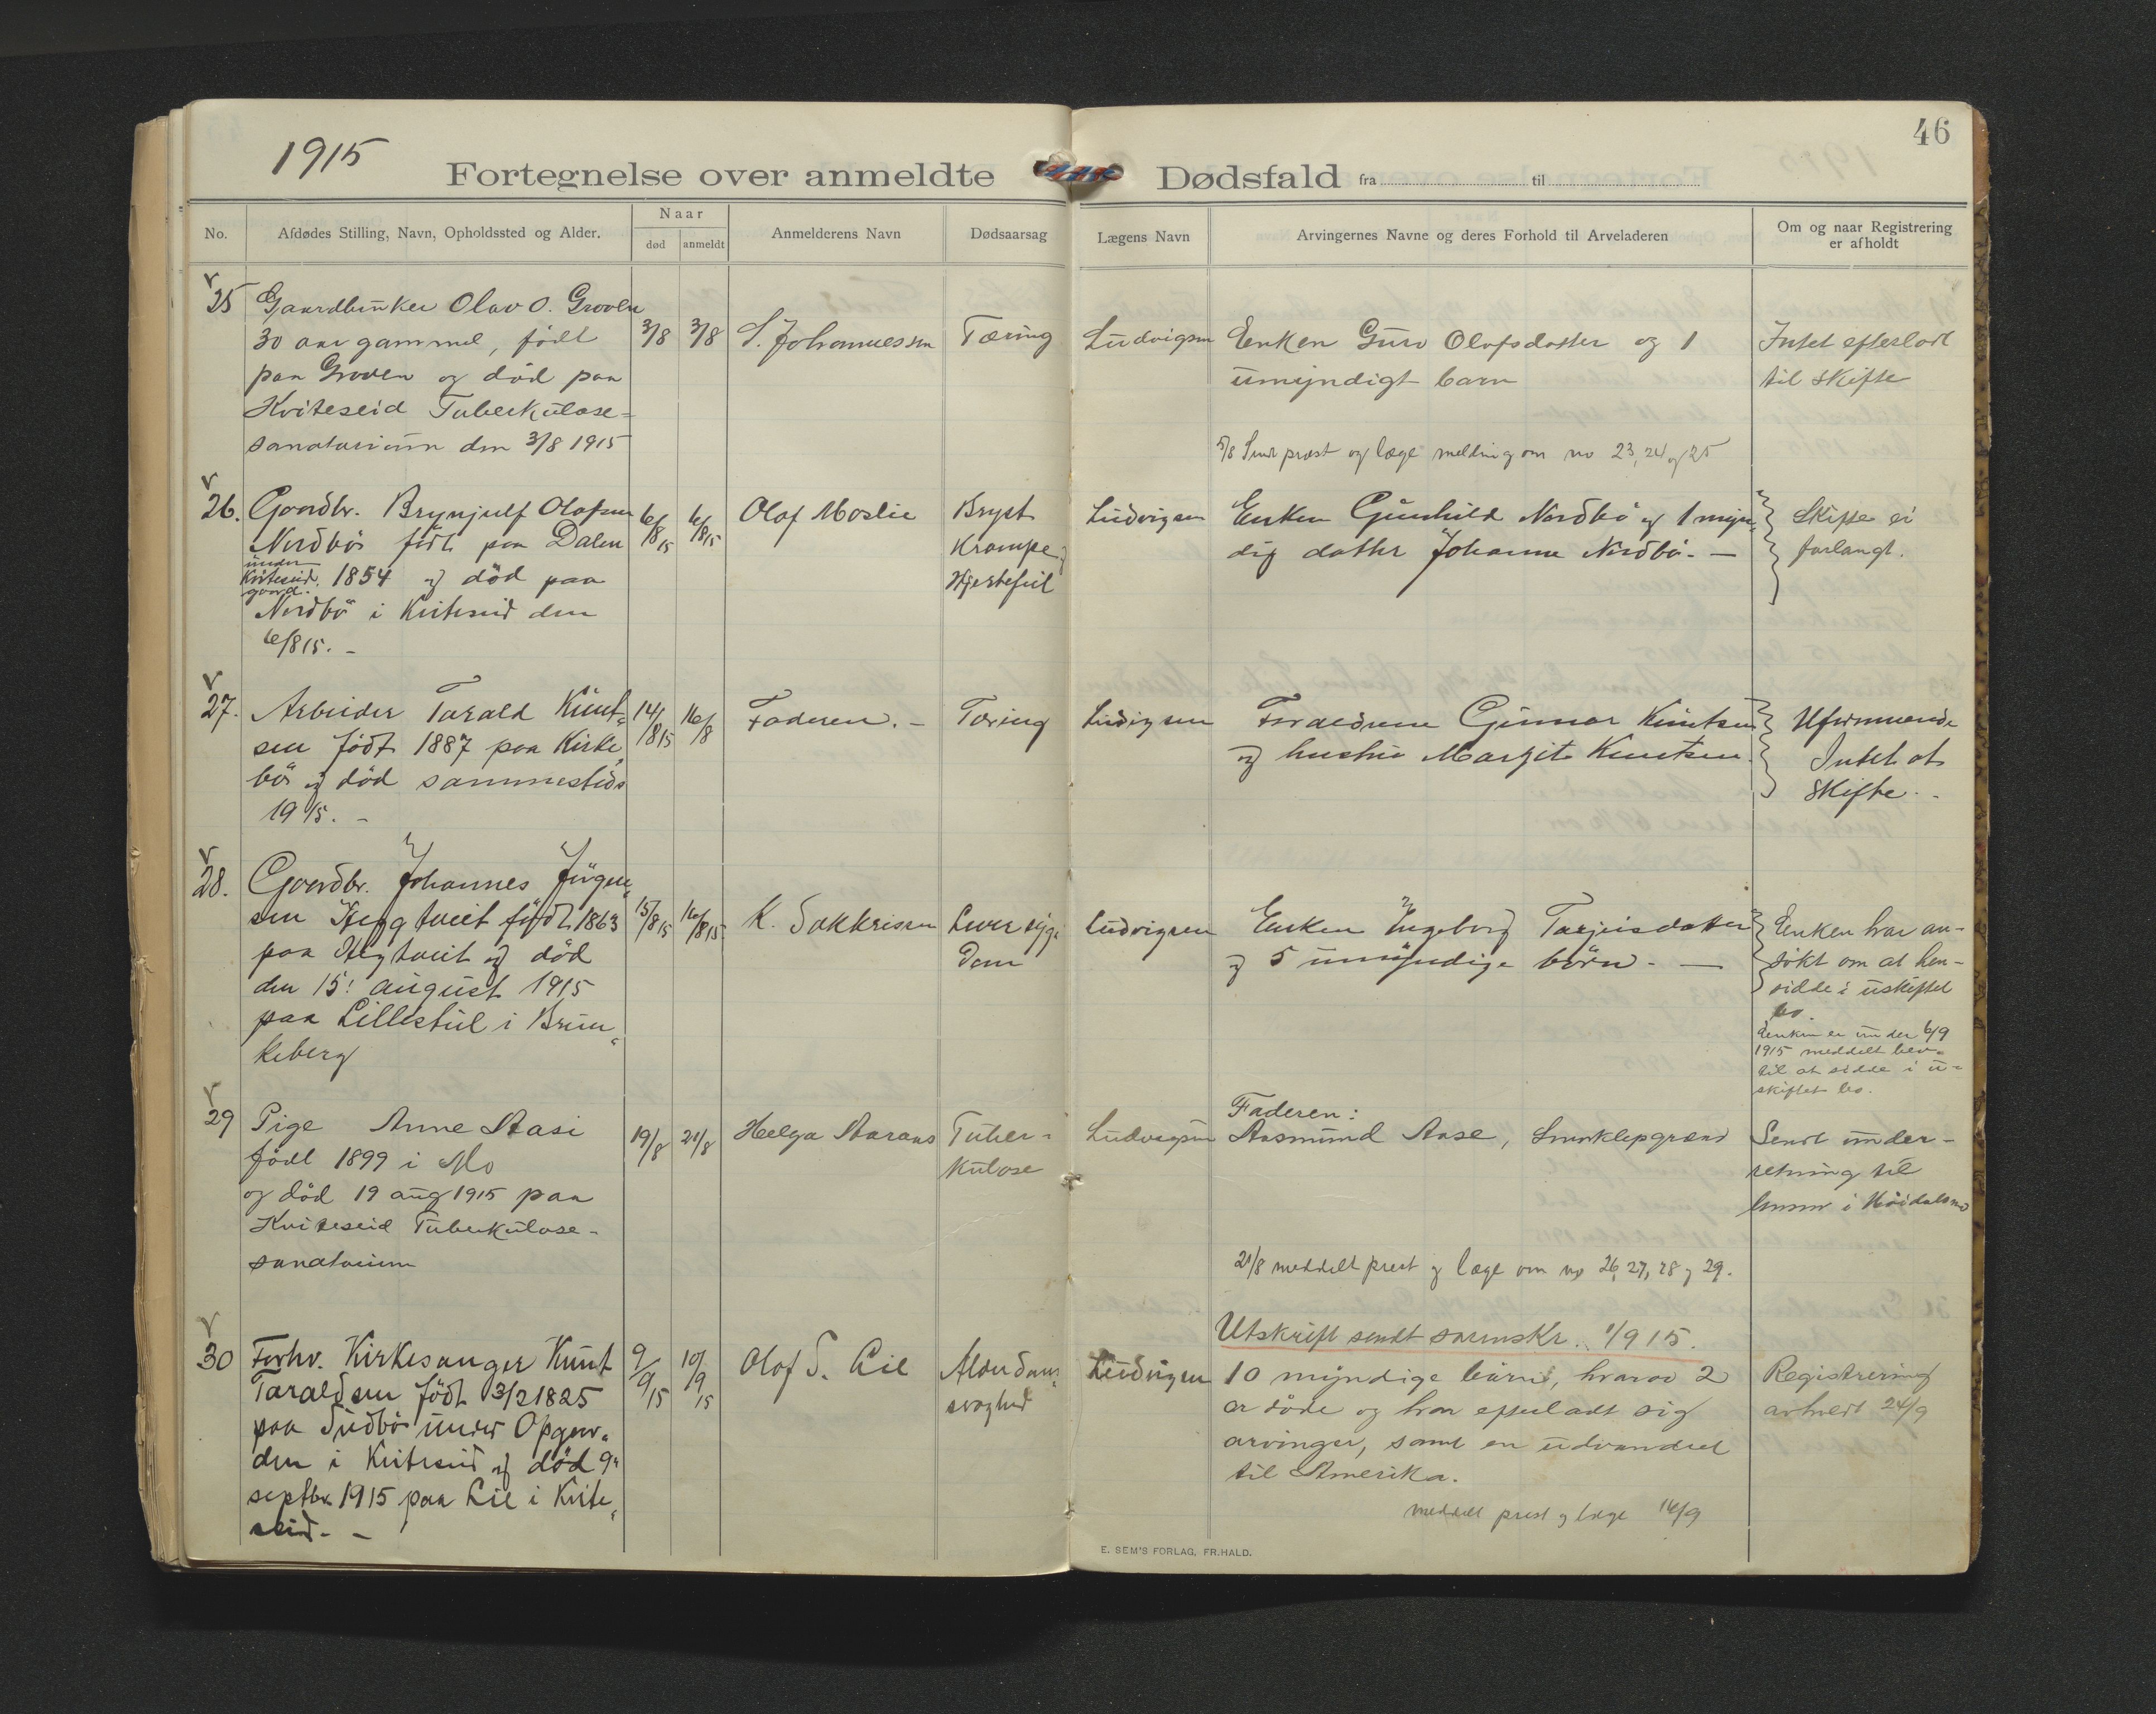 1915
46
Fortegnelse over anmeldte Dødsfald fra til
No.
Afdødes Stilling, Navn, Opholdssted og Alder.
Naar
død
anmeldt
Anmelderens Navn
Dødsaarsag
Lægens Navn
Arvingernes Navne og deres Forhold til Arveladeren
Om og naar Registrering
er afholdt
25
Gaardbruker Olav O. Groven
30 aar gammel, født
paa Groven og død paa
Kviteseid Tuberkulose-
sanatorium den 3/8 1915
3/8
3/8
S. Johannessen
Tæring
Ludvigsen
Enken Guro Olafsdatter og 1
umyndigt barn
Intet efterladt
til skifte
5/8 Sendt præst og læge melding om no 23, 24 og 25
26.
Gaardbr. Brynjulf Olafsen
Nordbö födt paa Dalen
under
Kviteseid
gaard.
1854 og död paa
Nordbö i Kviteseid den
6/8 15. -
6/8 15
6/8 15
Olaf Moslie
Bryst
Krampe og
Hjertefeil
Ludvigsen
Enken Gunhild Nordbö og 1 myn-
dig datter Johanne Nordbö. -
Skifte ei
forlangt.
27.
Arbeider Tarald Knut-
sen født 1887 paa Kirke-
bö og död sammesteds
1915. -
14/8 15
16/8
Faderen. -
Tæring
Ludvigsen
Forældrene Gunnar Knutsen
og hustru Margit Knutsen.
Uformuende
Intet at
skifte. -
28.
Gaardbr. Johannes Jörgen-
sen födt 1863
paa og död
den 15! august 1915
paa Lillestul i Brun-
keberg
15/8 15
16/8 15
K. Sakkrissen
Leversyge
dom
Ludvigsen
Enken Ingeborg Tarjeisdatter
og 5 umyndige börn. -
Enken har an-
søkt om at hen-
sidde i uskiftet
bo.
Enken er under 6/9
1915 meddelt bev-
til at sidde i u-
skiftet bo.
29
Pige Anne Aasi
født 1899 i Mo
og död 19 aug 1915 paa
Kviteseid Tuberkulose-
sanatorium
19/8
21/8
Helga Aarans
Tuber-
kulose
Ludvigsen
Faderen:
Aasmund Aase,
Sendt under-
retning til
lensm i Höidalsmo
21/8 meddelt prest og læge om no 26, 27, 28 og 29.
Utskrift sendt sorenskr. 1/9 15.
30
Forhv. Kirkesanger Knut
Taraldsen födt 13/2 1825
paa Sudbö under Opgaar-
den i Kviteseid og död 9"
septbr. 1915 paa Lie i Kvite-
seid. -
9/9 15
10/9 15
Olaf S. Lie
Alderdoms-
svaghed
Ludvigsen
10 myndige börn, hvorav 2
er döde og har efterladt sig
arvinger, samt en udvandret
til Amerika.
Registrering
avholdt 24/9
meddelt prest og læge 14/9
E. SEM'S FORLAG, FR.HALD.